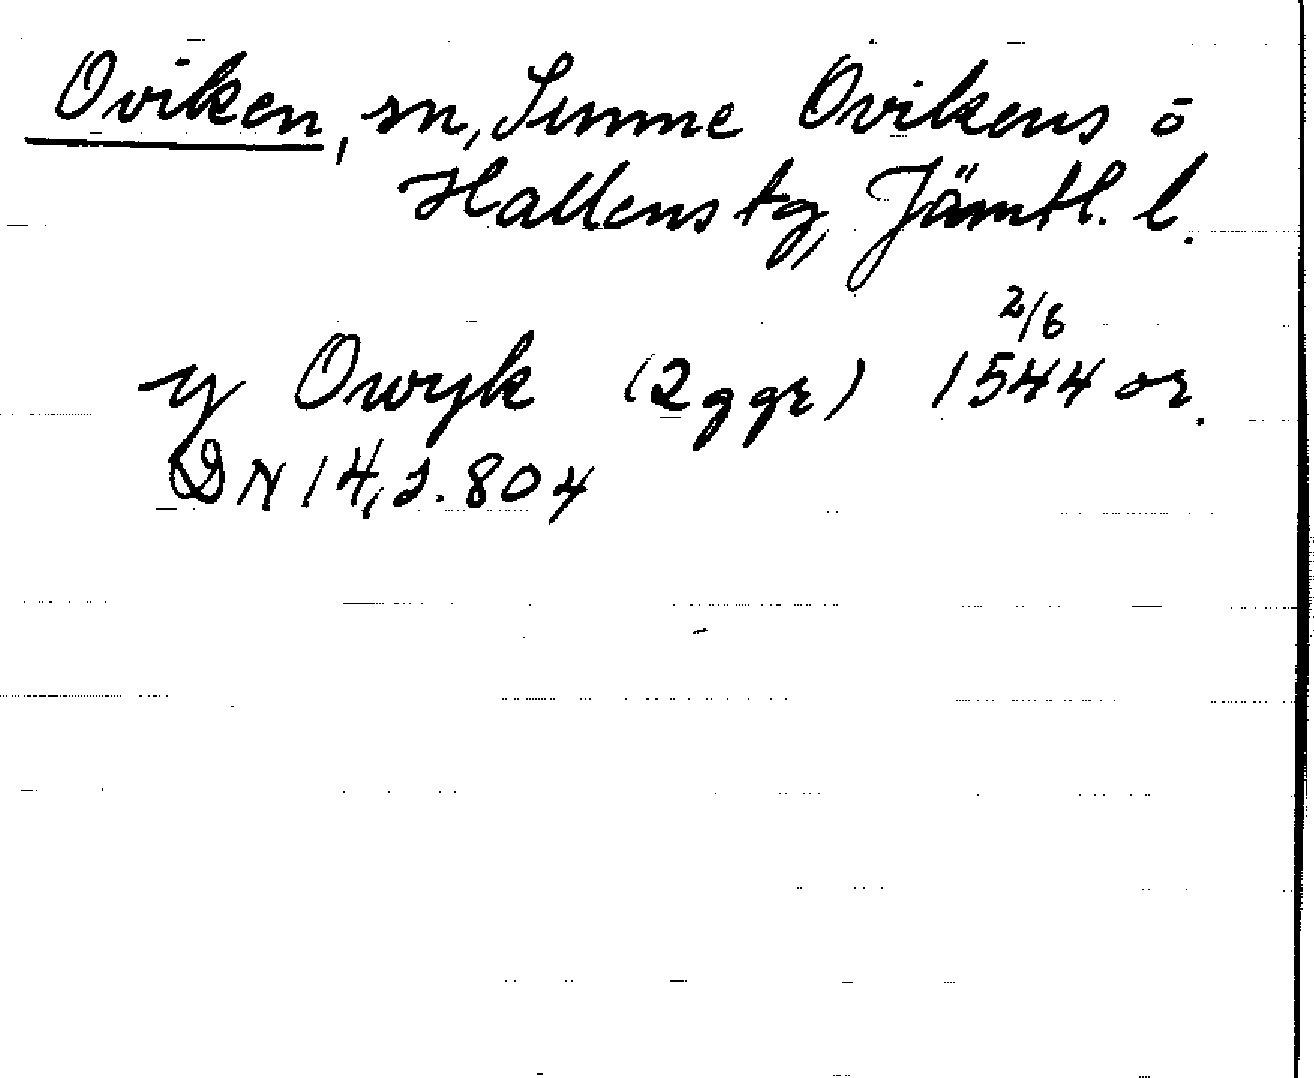 Oviken, sn, Sunne Ovikens o
Hallens tg, Jämtl. l.
y Owyk (2 ggr) 1544 2/6 or.
DN 14, s. 804